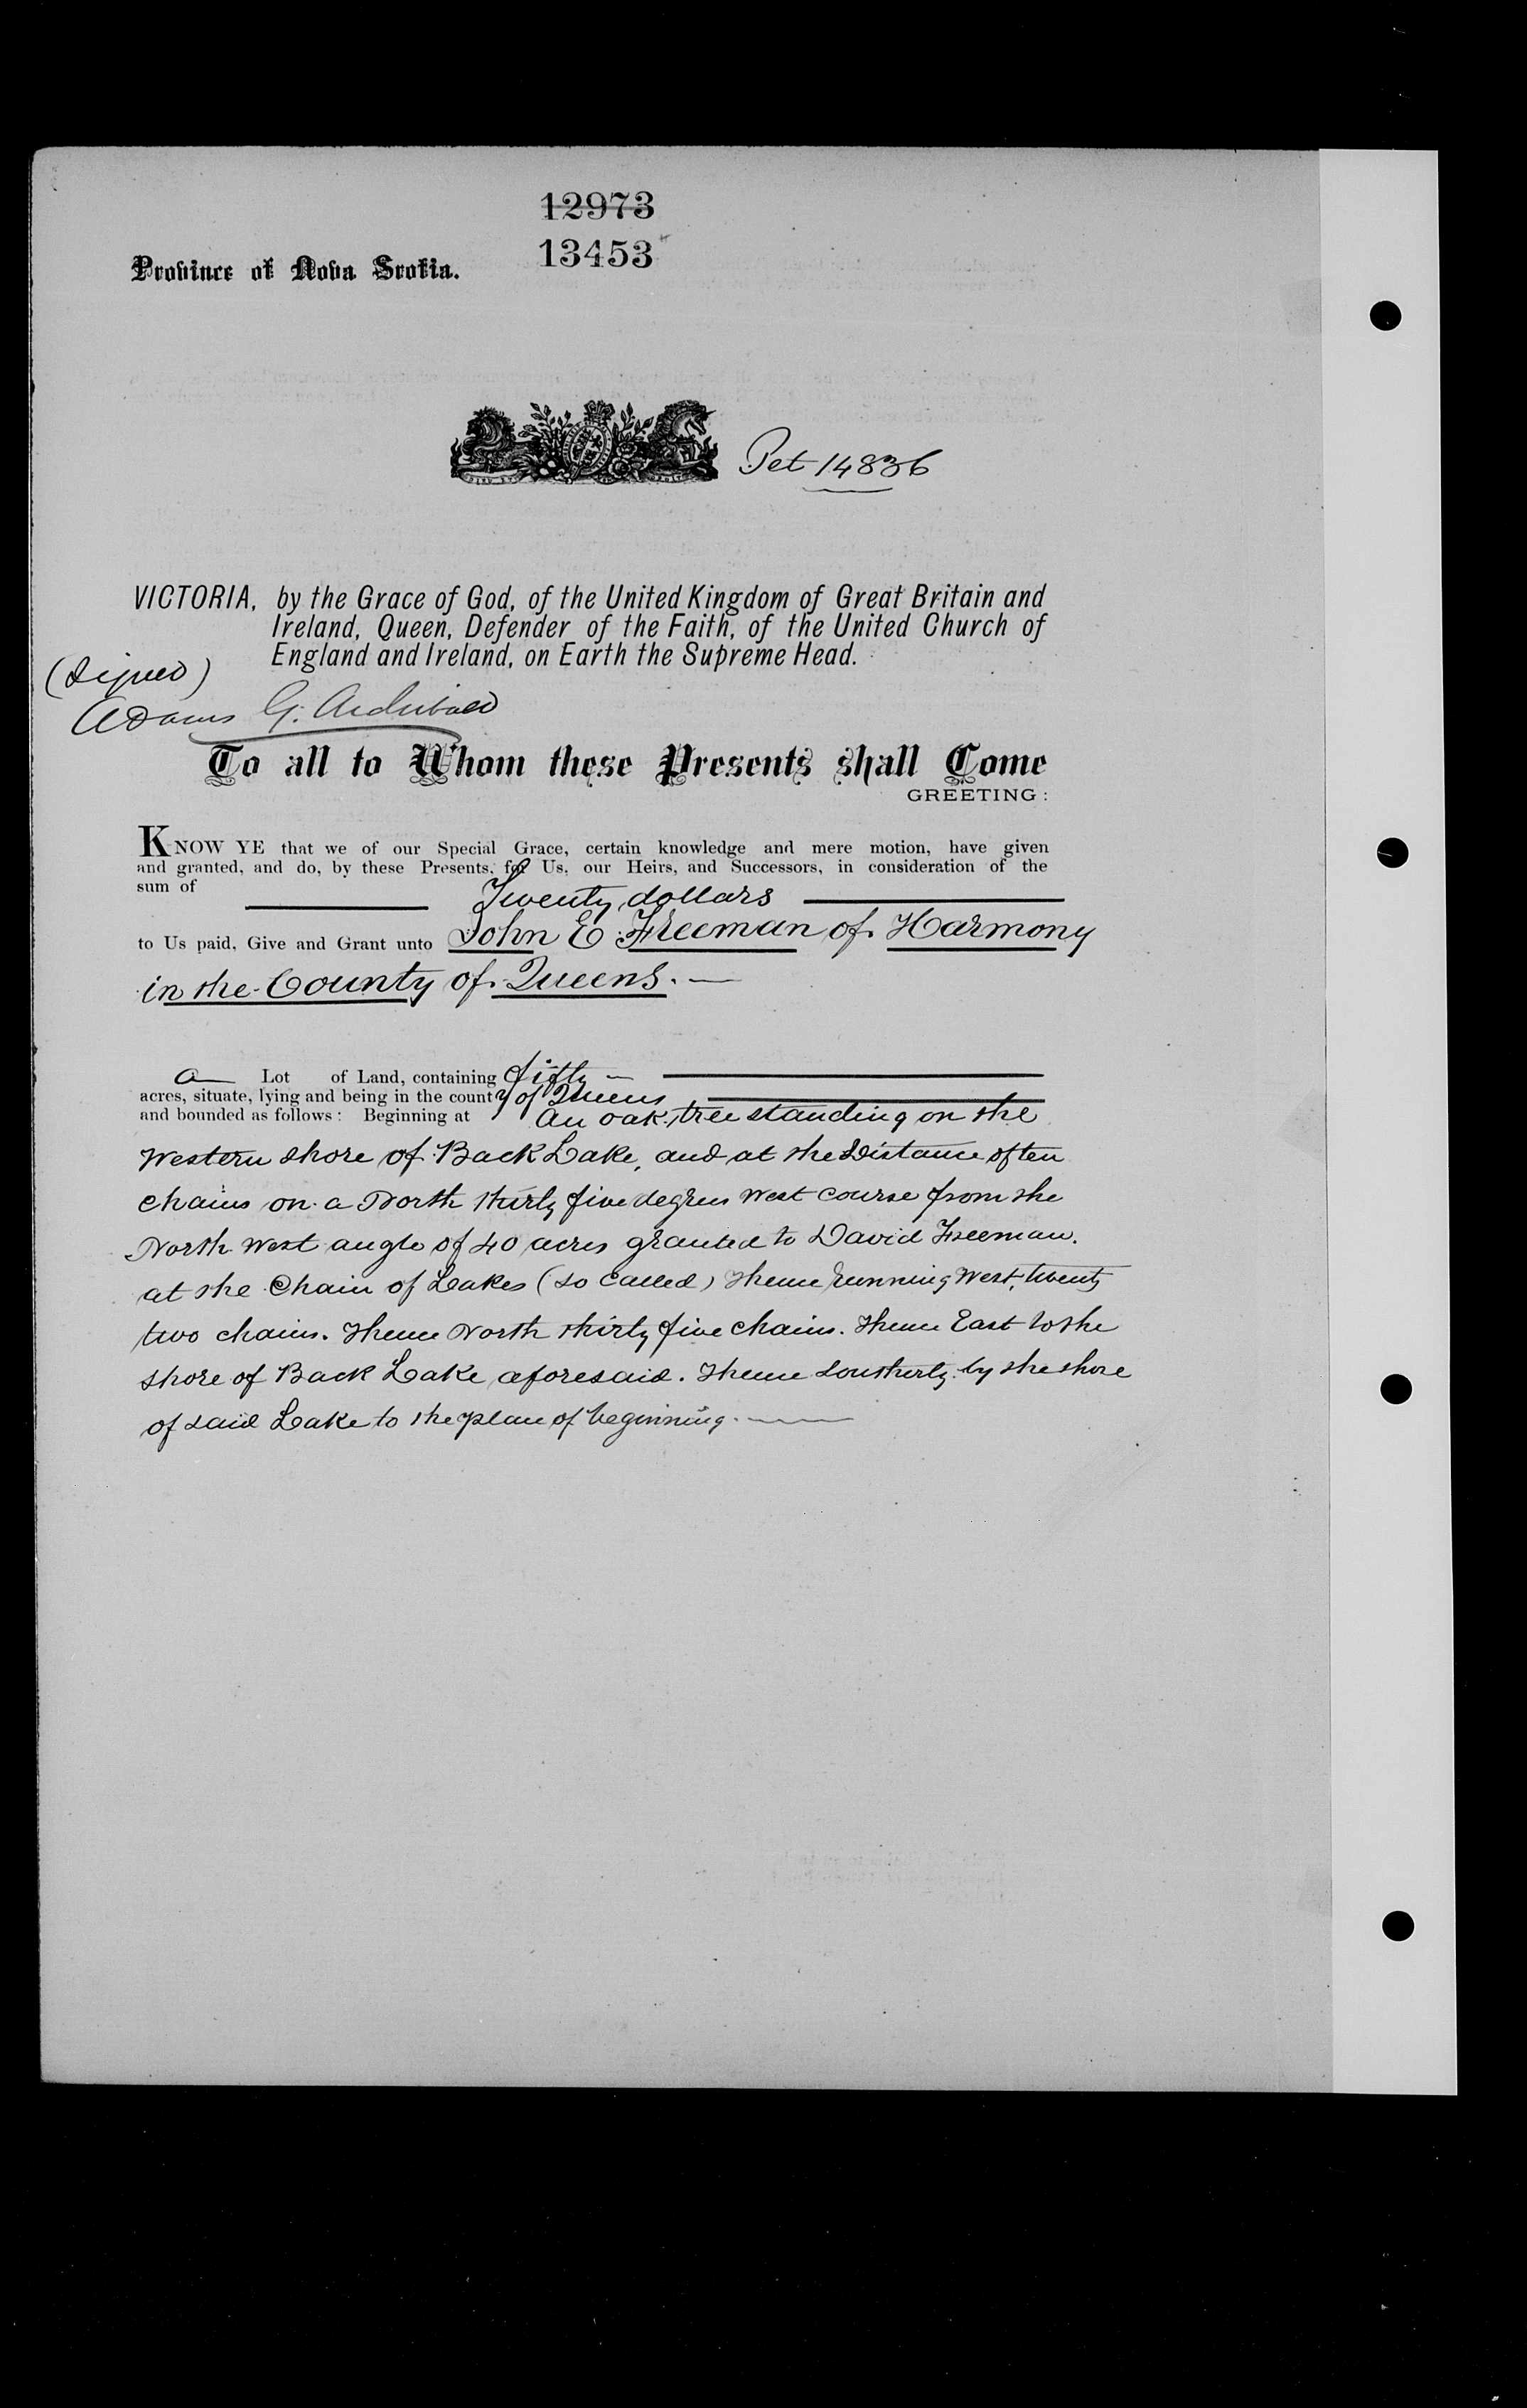 12973
13453
Province of Nova Scotia.
Pet 14836
VICTORIA, by the Grace of God, of the United Kingdom of Great Britain and
Ireland, Queen, Defender of the Faith, of the United Church of
England and Ireland, on Earth the Supreme Head.
(Signed)
Adams G. Archibald
To all to Whom these Presents shall Come
GREETING:
KNOW YE that we of our Special Grace, certain knowledge and mere motion, have given
and granted, and do, by these Presents, for Us, our Heirs, and Successors, in consideration of the
sum of Twenty dollars
to Us paid, Give and Grant unto John E Freeman of Harmony
in the County of Queens.
a Lot of Land, containing fifty
acres, situate, lying and being in the county of Queens
and bounded as follows: Beginning at an oak tree standing on the
Western shore of Back Lake, and at the distance of ten
chains on a North thirty five degrees West course from the
North West angle of 40 acres granted to David Freeman.
at the Chain of Lakes (so called) Thence running West, twenty
two chains. Thence North thirty five chains. Thence East to the
shore of Back Lake aforesaid. Thence Southerly by the shore
of said Lake to the place of beginning.